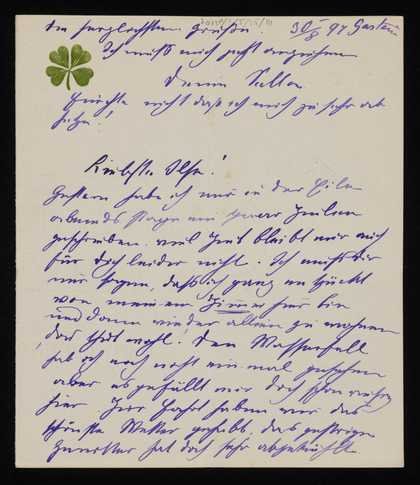 die herzlichsten Grüße! 30/8 97 Gastein
Ich muß mich jetzt anziehen
Deine
nicht daß ich mich zu sehr ab
hetze!
Liebste Ilse!
Gestern habe ich nur in der Eile
abends ein paar Zeilen
geschrieben. viel Zeit bleibt mir auch
für Dich leider nicht. Ich muß Dir
nur sagen, daß ich ganz entzückt
von meinem Zimmer hier bin
und dann wieder allein zu wohnen
das thut wohl. Den Wasserfall
hab ich noch nicht einmal gesehen
aber es gefällt mir doch schon
hier. Zur Fahrt haben wir das
schönste Wetter gehabt, das gestrige
Gewitter hat doch sehr abgekühlt